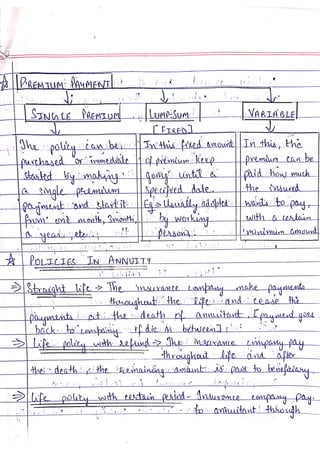 PREMIUM PAYMENT
SINGLE PREMIUM
The policy can be
purchased or immediate
started by making
a single premium
payment and start it
from one month, 3month,
a year etc.
LUMP-SUM
[FIXED]
In this fixed amount
of premium keep
going until a
specified date.
Eg → Usually adopted
by working
person.
VARIABLE
In this, the
premium can be
paid how much
the insured
wants to pay,
with a certain
minimum amount
POLICIES IN ANNUITY
Straight life → The insurance company make payments
throughout the life and cease the
payments at the death of annuitant. [payment goes
back to company if die in between]
Life policy with refund → The insurance company pay
throughout life and after
the death, the remaining amount is paid to beneficiary.
Life policy with certain period - Insurance company pay
to annuitant through